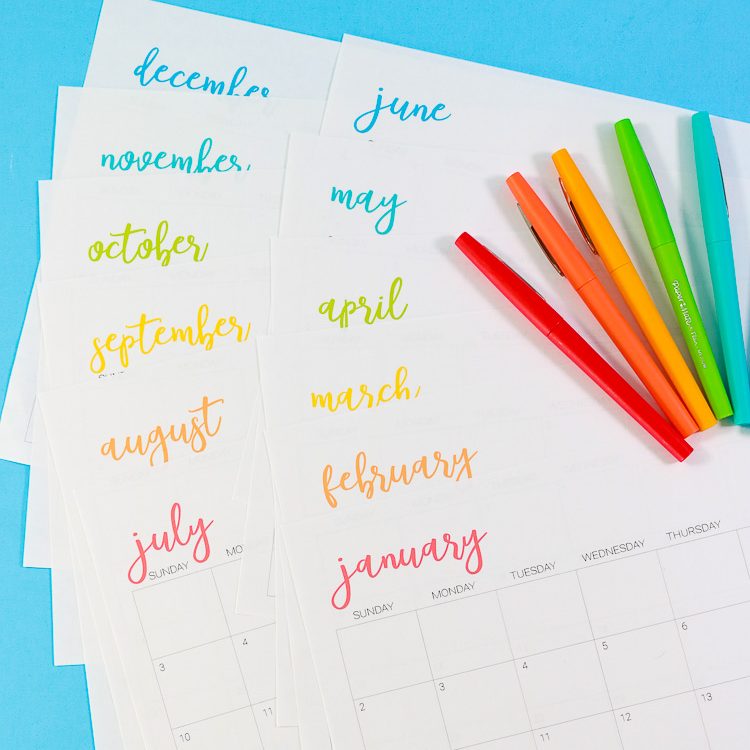 december
november
october
september
august
july
SUNDAY
3 4
10 11
june
may
april
march
february
january
SUNDAY MONDAY TUESDAY WEDNESDAY THURSDAY
2 3 4 5 6
11 12 13
Paper Mate